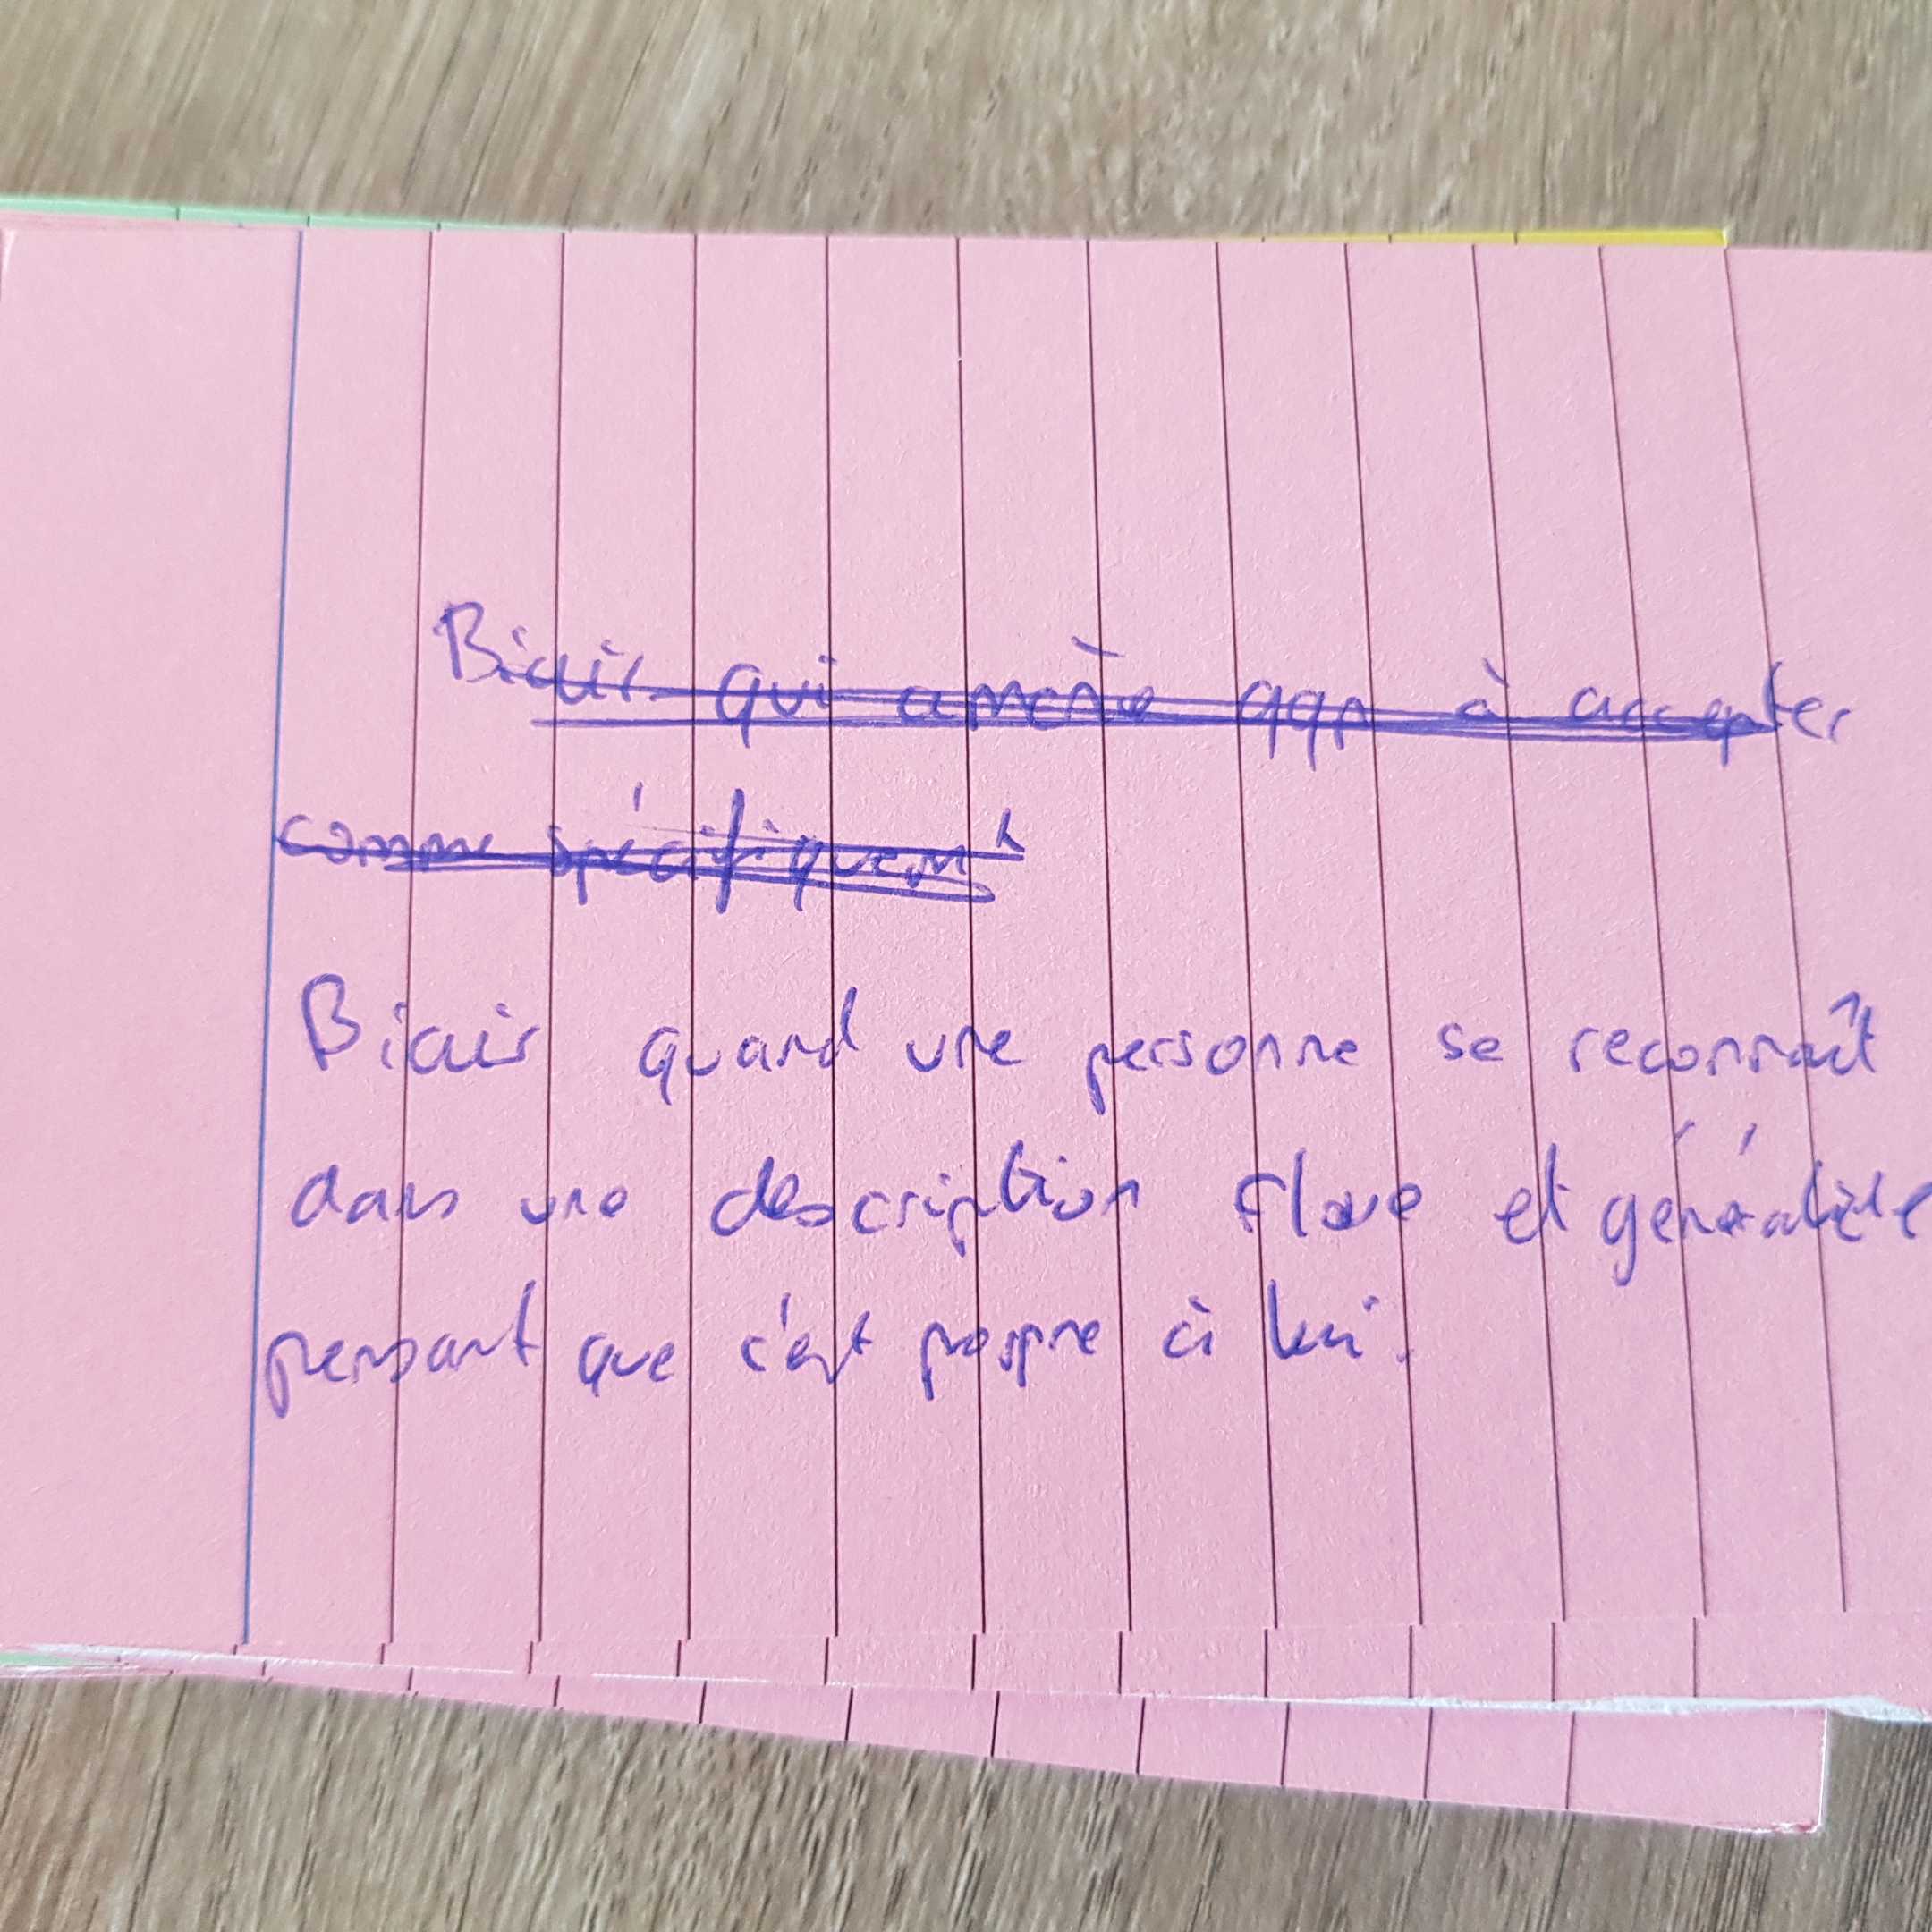 Biais qui amène qqn à accepter
comme spécifiquem^t
Biais quand une personne se reconnaît
dans une description floue et
pensant que c'est propre à lui.